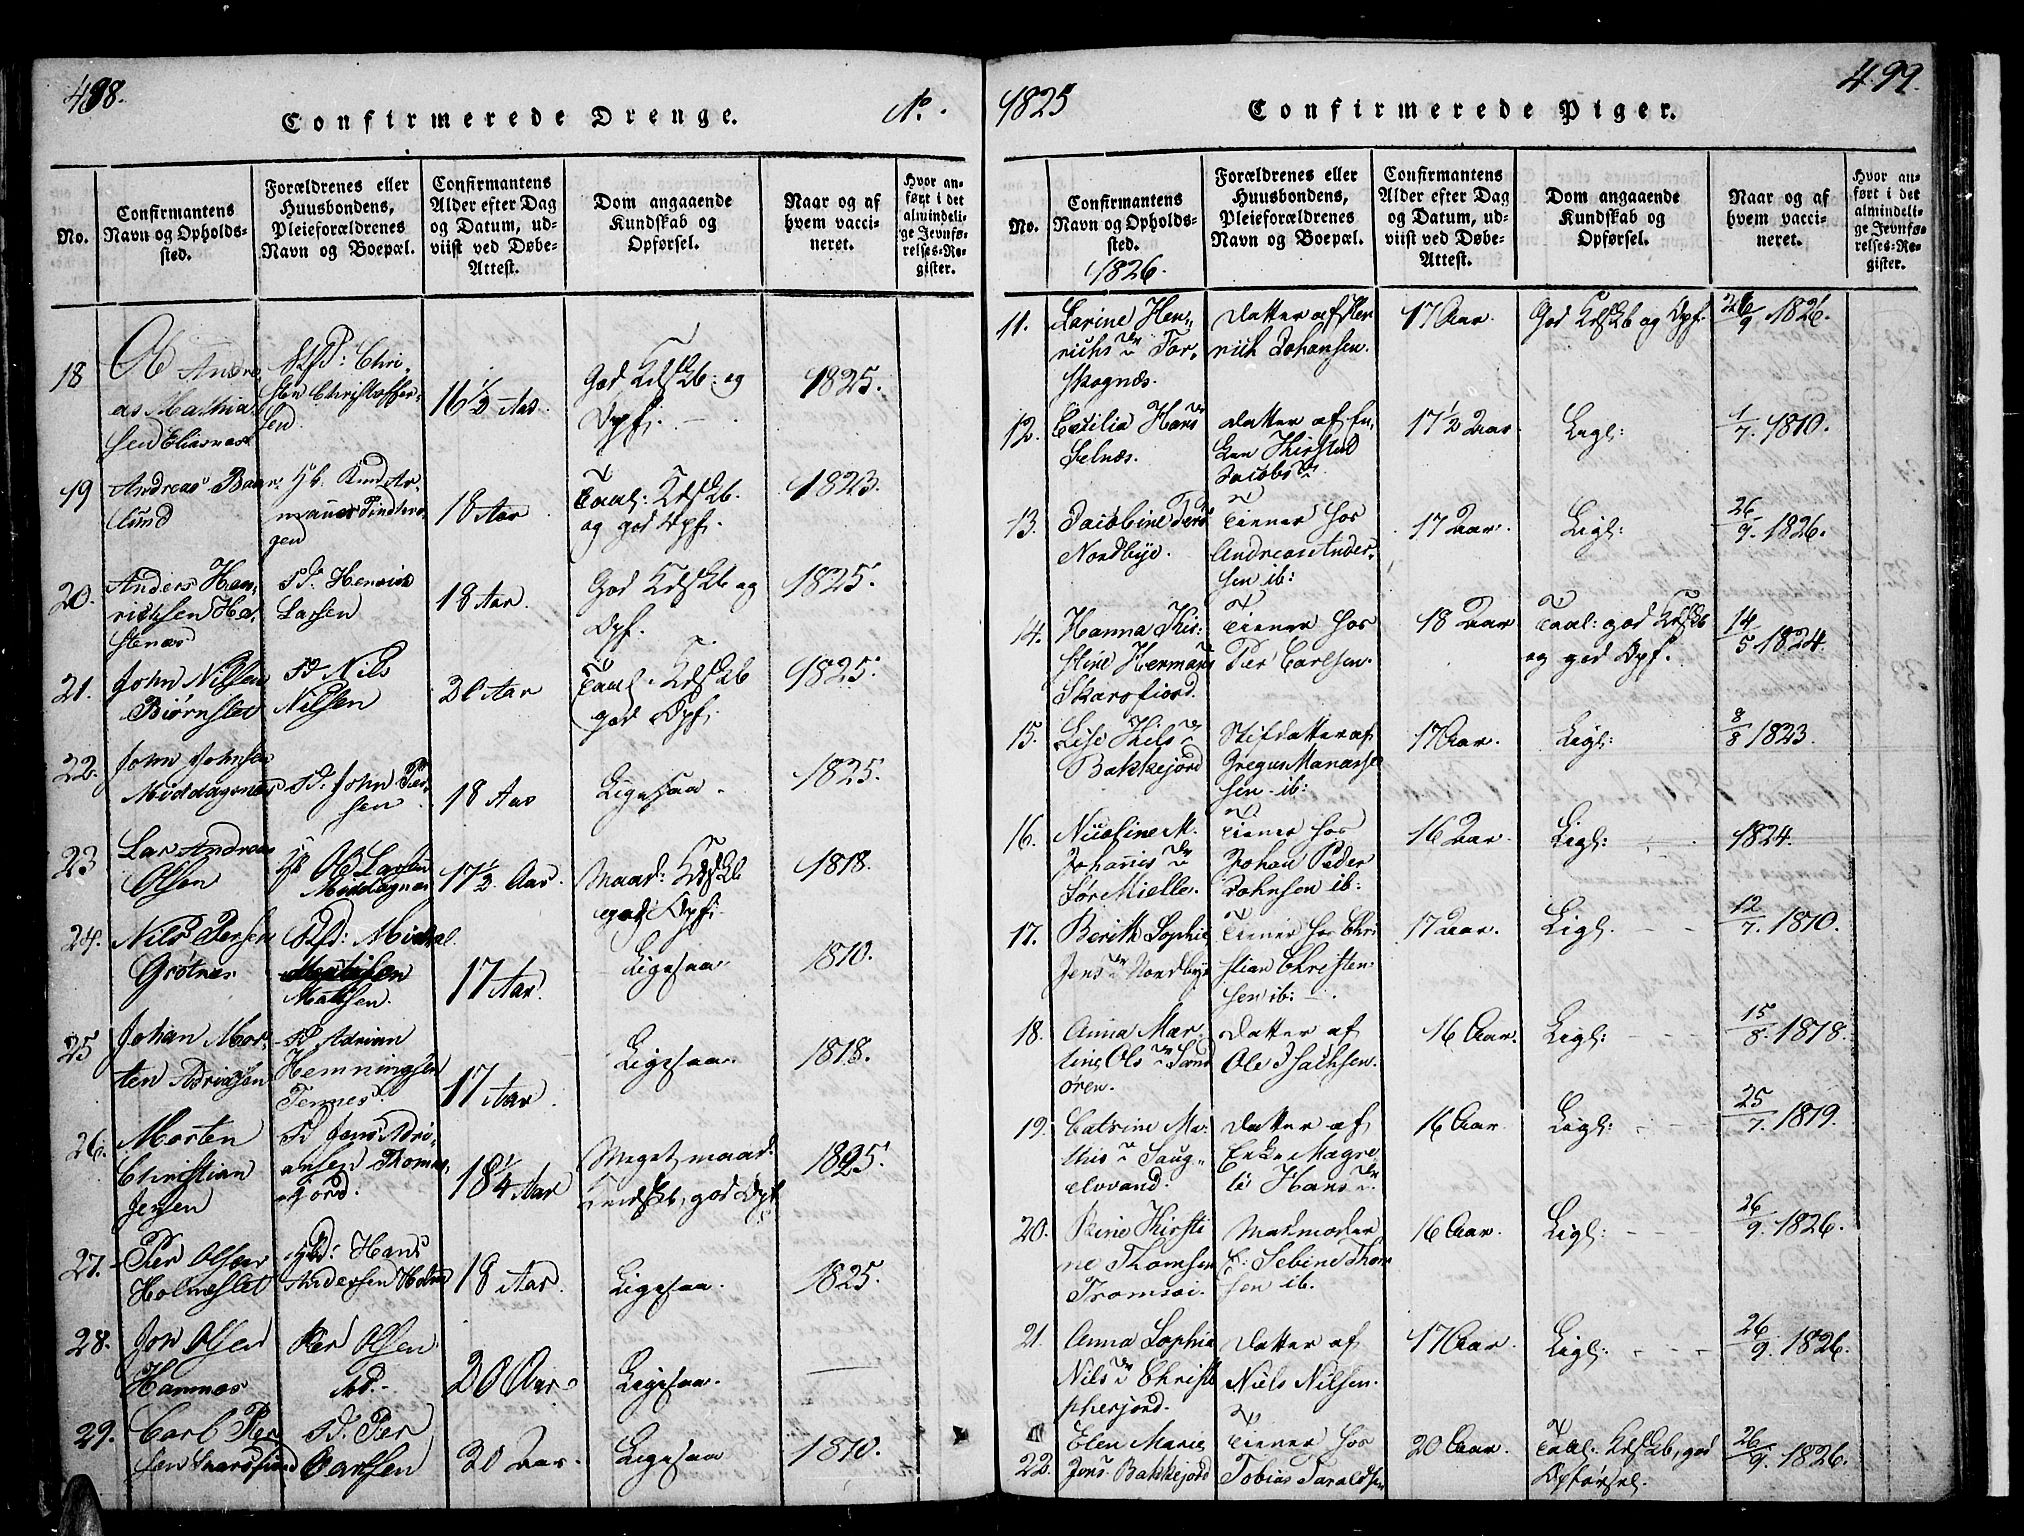 498.
Confirmerede Drenge.
No.
No.
Confirmantens Navn og Opholds-sted.
Forældrenes eller Huusbondens, Pleieforældrenes Navn og Boepæl.
Confirmantens Alder efter Dag og Datum, ud-viist ved Døbe-Attest.
Dom angaaende Kundskab og Opførsel.
Naar og af hvem vacci-neret.
Hvor an-ført i det almindeli-ge Jevnfø-relses-Re-gister.
18
Andre-
as Mathia-
sen
Chri-
sten Christoffer-
sen
16 1/2 Aar.
God Kdskb: og
Opf:
1825.
19
Andreas
18 Aar
Taal: Kdskb.
og god Opf:
1823.
20.
Anders Hen-
richsen
Henrich
Larsen
18 Aar.
God Kdskb og
Opf.
1825.
21.
John Nilsen
Biørnslet
Nils
Nilsen
20 Aar
Taal. Kdskb
god Opf:
1825.
22.
John Johnsen
Middagsnæs
John Per-
sen
18 Aar
Ligesaa.
1825.
23
Lars Andreas
Olsen
Ole Larsen
Middagnæs
17 1/2 Aar.
Maad: Kdskb
god Opf:
1818.
24.
Nils Persen
Grøtnæs
Michal
Mattsen.
17 Aar.
Ligesaa.
1810.
25
Johan Mor-
ten Adriansen
Adrian
Hemmingsen
Tennes
17 Aar.
Ligesaa.
1818.
26.
Morten
Christian
Jensen
Jens Adri-
ansen Thomas-
jord.
18 1/4 Aar
Meget maad:
Kundskb, god Opf.
1825.
27.
Per Olsen
Holmeslet
Hans
Andersen Holm
18 Aar.
Ligesaa.
1825.
28.
Jon Olsen
Hannæs
Per Olsen
20 Aar.
Ligesaa.
29.
Carl Per
sen
Per
Carlsen
20 Aar.
Ligesaa.
1810.
1825
Confirmerede Piger.
499.
No.
Confirmantens Navn og Opholds-sted.
1826.
Forældrenes eller Huusbondens, Pleieforældrenes Navn og Boepæl.
Confirmantens Alder efter Dag og Datum, ud-viist ved Døbe-Attest.
Dom angaaende Kundskab og Opførsel.
Naar og af hvem vacci-neret.
Hvor an-ført i det almindeli-ge Jevnfø-relses-Re-gister.
11.
Larine Hen-
richs Dr For-
skognæs.
Datter af Hen
rich Johansen.
17 Aar.
God Kdskb og Opf.
26/9 1826.
12.
Cecilia Hans Dr
Selnæs.
Datter af En-
ken Kirstad
Jacobs Dr
17 1/2 Aar
Ligl:
1/7. 1810.
13.
Jacobine Pers
Nordbye.
Tiener hos
Andreas Ander-
sen ib:
17 Aar.
Ligl:
26/9. 1826.
14.
Hanna Kir-
stine Hermans
Skarsfiord.
Tiener hos
Per Carlsen.
18 Aar
Taal: god Kdskb
og god Opf.
14/5 1824.
15.
Lise Nils Dr
Bakkejord
Stifdatter af
Gregus Manasse
sen ib:
17 Aar.
Ligl:
8/8 1823.
16.
Nicoline M.
Johannis Dr
Sør Mielle.
Tiener hos
Johan Peder
Johnsen ib:
16 Aar
Ligl:
1824.
17.
Berith Sophie
Jens Dr Nordbye
Tiener hos Chri
stian Christen-
sen ib:
17 Aar.
Ligl.
12/7. 1810.
18.
Anna Mar-
tine Ols Dr Sand
ören.
Datter af
Ole Isachsen.
16 Aar.
Ligl:
15/8. 1818.
19.
Catrine Ma-
this Dr Saug-
elvvand.
Datter af
Enke Magre-
te Hans Dr.
16 Aar.
Ligl:
25/7. 1819.
20.
Kirsti
ne Thomsen
Tromsøi.
Madmoder
E: Sebine Thom
sen ib.
16 Aar.
Ligl:
26/9. 1826.
21.
Anna Sophia
Nils Dr Christo
pherjord.
Datter af
Niels Nilsen.
17 Aar.
Ligl:
26/9. 1826.
22.
Elen Marie
Jens. Bakkejord
Tiener hos
Tobias Taraldsen
20 Aar.
Taal: Kdskb, god
Opførsel.
26/9. 1826.